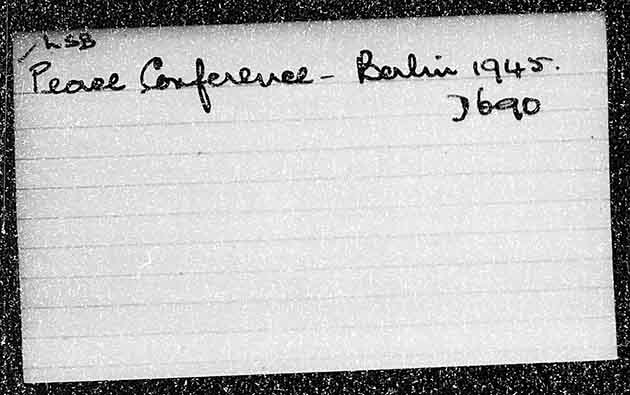 LSB
Peace Conference - Berlin 1945.
J690